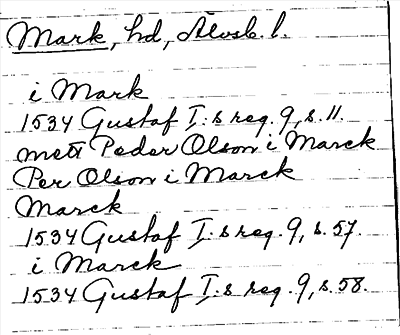 Mark, hd, Älvsb. l.
i Mark
1534 Gustaf I:s reg. 9, s. 11.
mett Peder Olson i Marck
Per Olson i Marck
Marck
1534 Gustaf I:s reg. 9, s. 57.
i Marck
1534 Gustaf I:s reg. 9, s. 58.